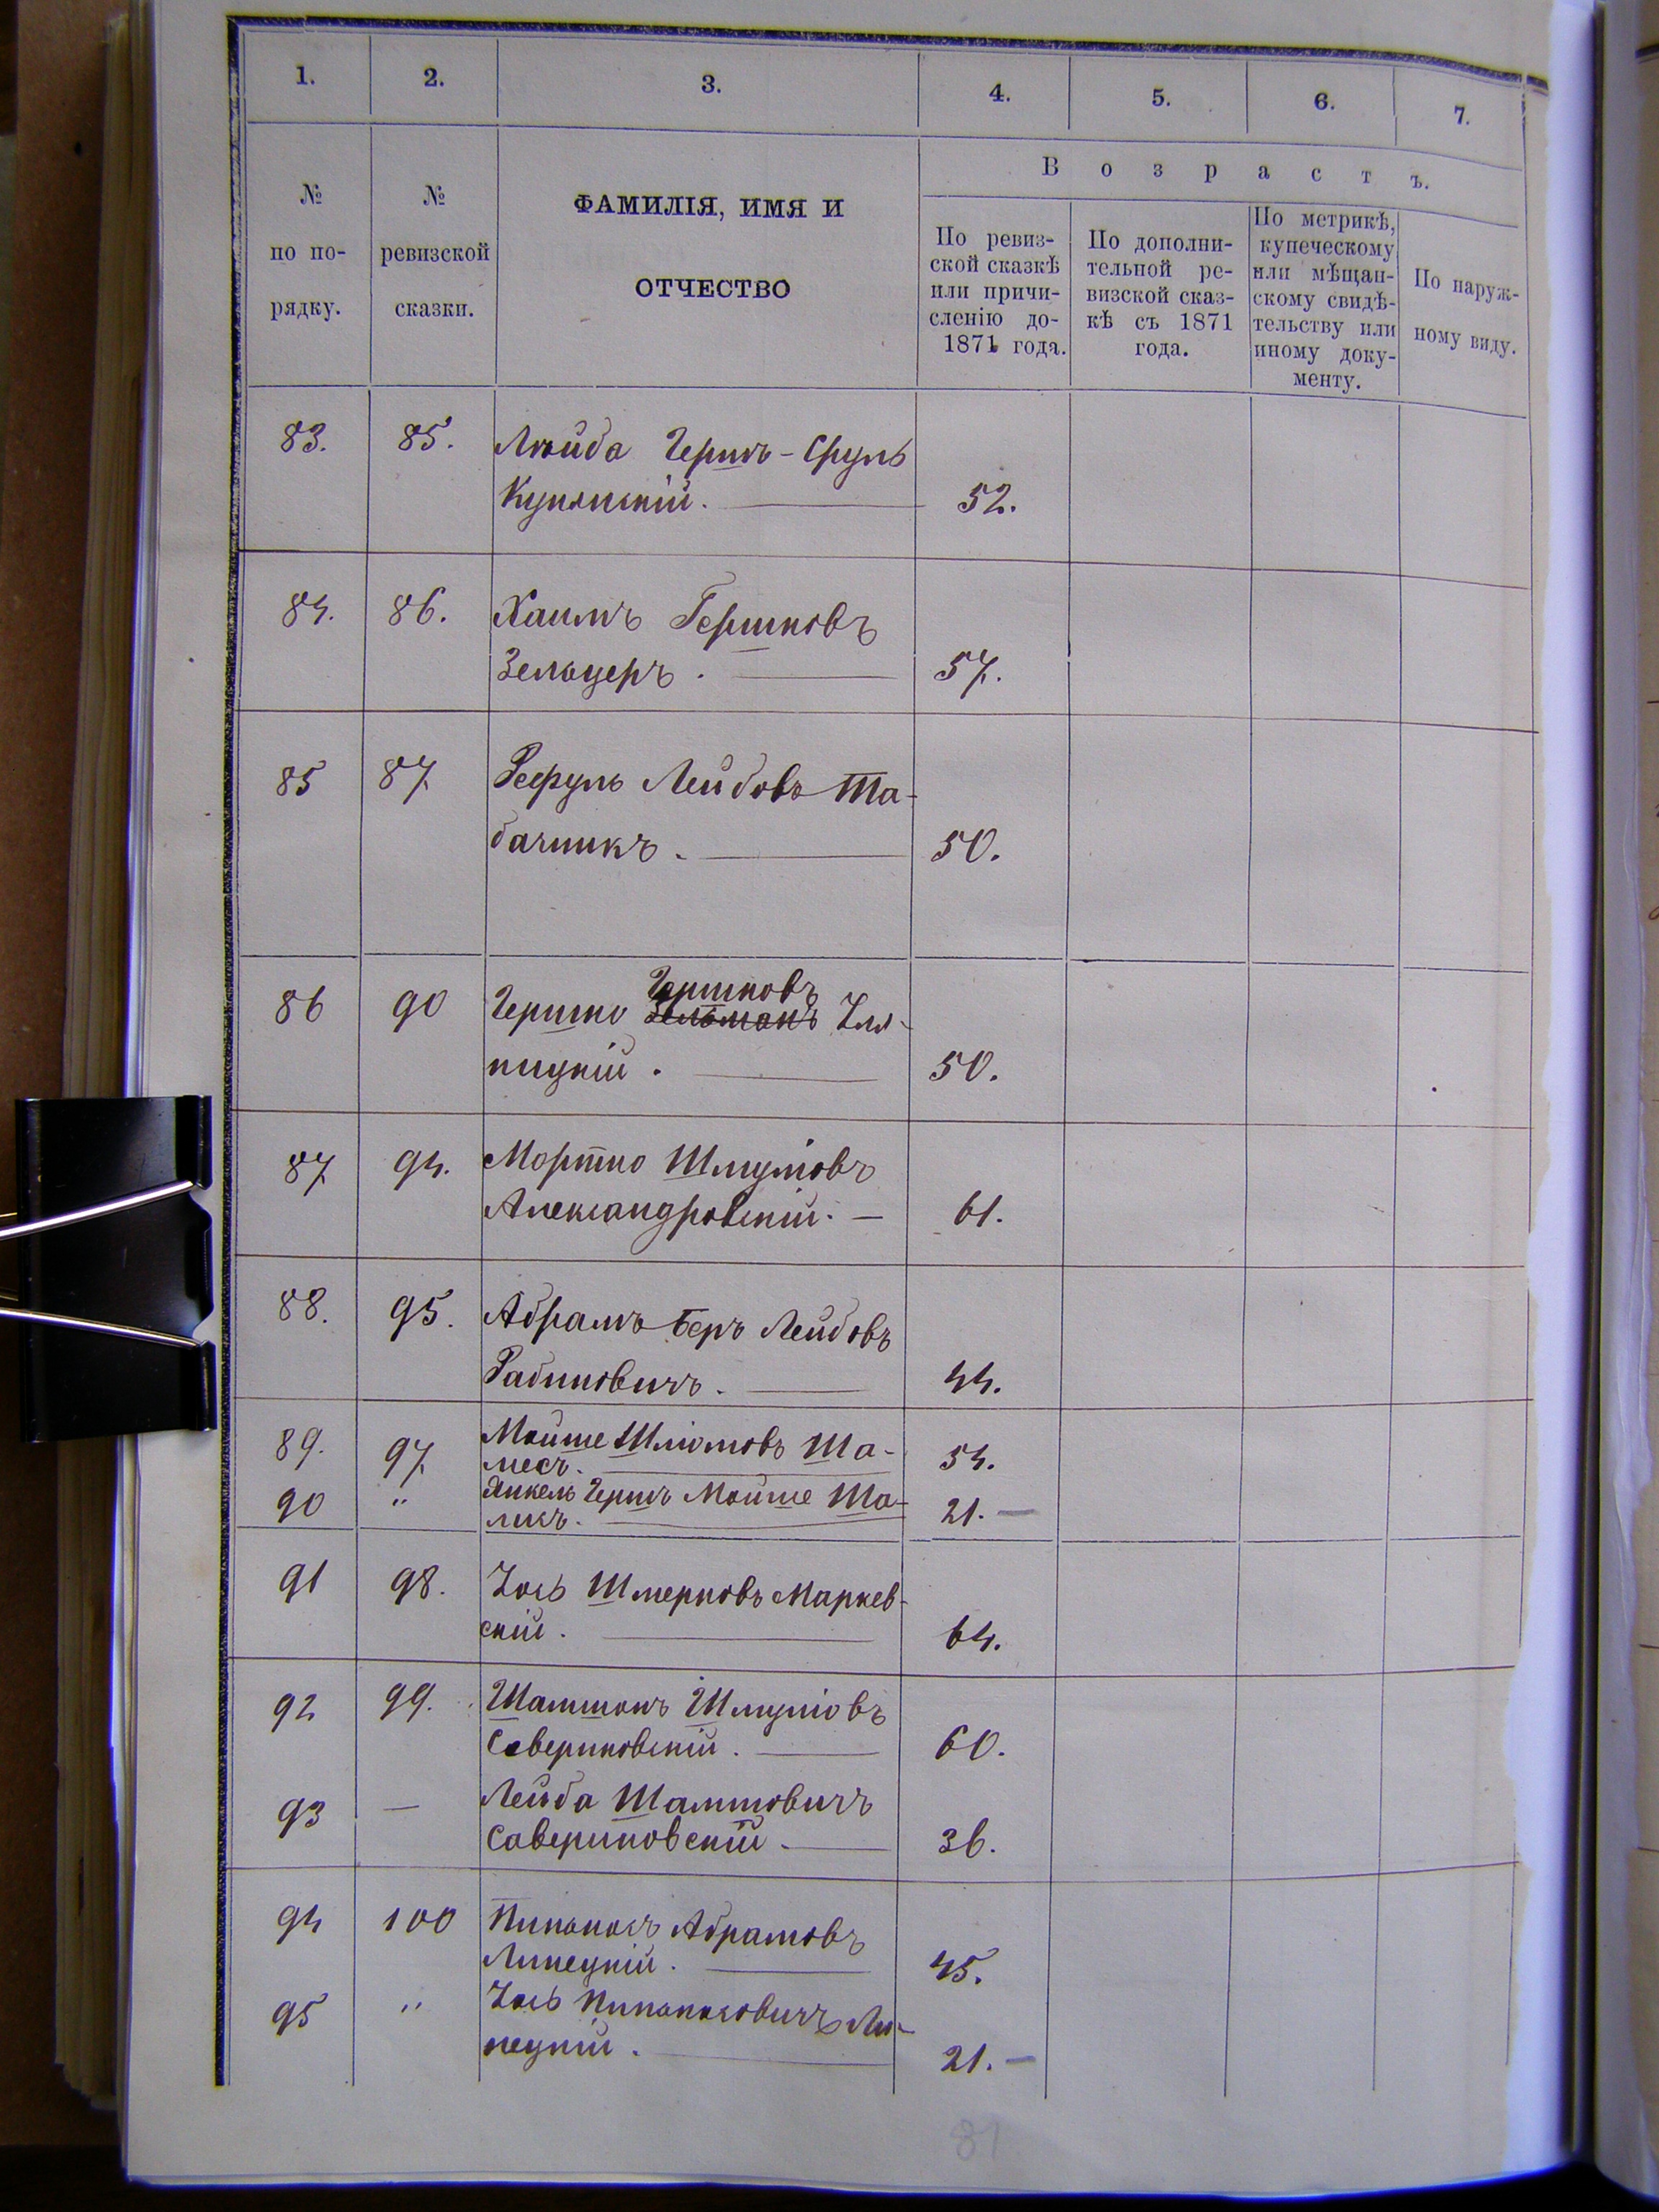 1. 2. 3. 4. 5. 6. 7.
№ по по-
рядку.
№ ревизской
сказки.
ФАМИЛІЯ, ИМЯ И
ОТЧЕСТВО
Возрастъ.
По ревиз-
ской сказкѣ
или причи-
сленію до
1871 года.
По дополни-
тельной ре-
визской сказ-
кѣ съ 1871
года.
По метрикѣ,
купеческому
или мѣщан-
скому свидѣ-
тельству или
иному доку-
менту.
По наруж-
ному виду.
83. 85. Лейба Гершъ-Сруль
52.
84. 86. Хаимъ Гершковъ
Зельцеръ. 57.
85 87 Рефуль Лейбовъ Та-
бачникъ. 50.
Гершковъ
86 90 Гершко Зельманъ
пицкій. 50.
87 94. Мортко Шмулiовъ
Александровскій. 61.
88. 95. Абрамъ Беръ Лейбовъ
Рабиновичъ. 44.
89. 97 Мойше Шліомовъ Ша-
месъ. 54.
90 " Янкель Гершъ Мойше Ша-
месъ. 21.
91 98. Іось Шмерковъ Маркев-
скій. 64.
92 99. Шамшонъ Шмулiовъ
Савериновскій. 60.
93 — Лейба Шамшовичъ
Савериновскій 36.
94 100 Пинькасъ Абрамовъ
Липецкій. 45.
95 " Іось Пинькасовичъ Ли-
пецкій. 21.
81